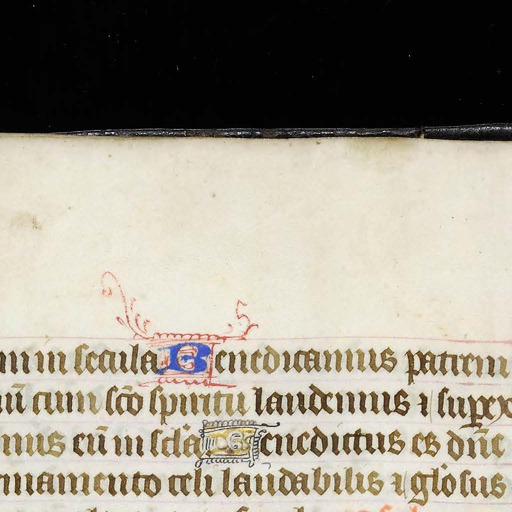 m in secula Benedicamus patrem
iũ cum sc̃o spiritu laudemus ⁊ superex
mus eũ in sc̃la Benedictus es dñe
rmamento celi laudabilis ⁊ gl̃osus